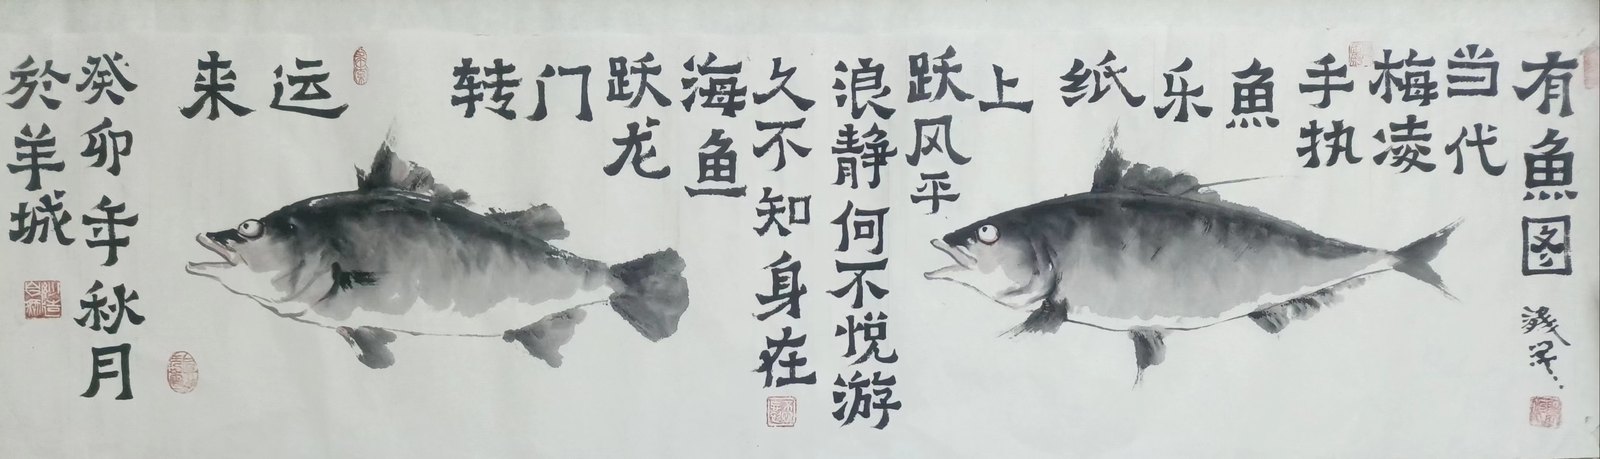 有魚图
当代
梅凌
手执
魚
乐
纸
上
跃风平
浪静何不悦游
久不知身在
海鱼
跃龙
门
转
运
来
癸卯年秋月
於羊城